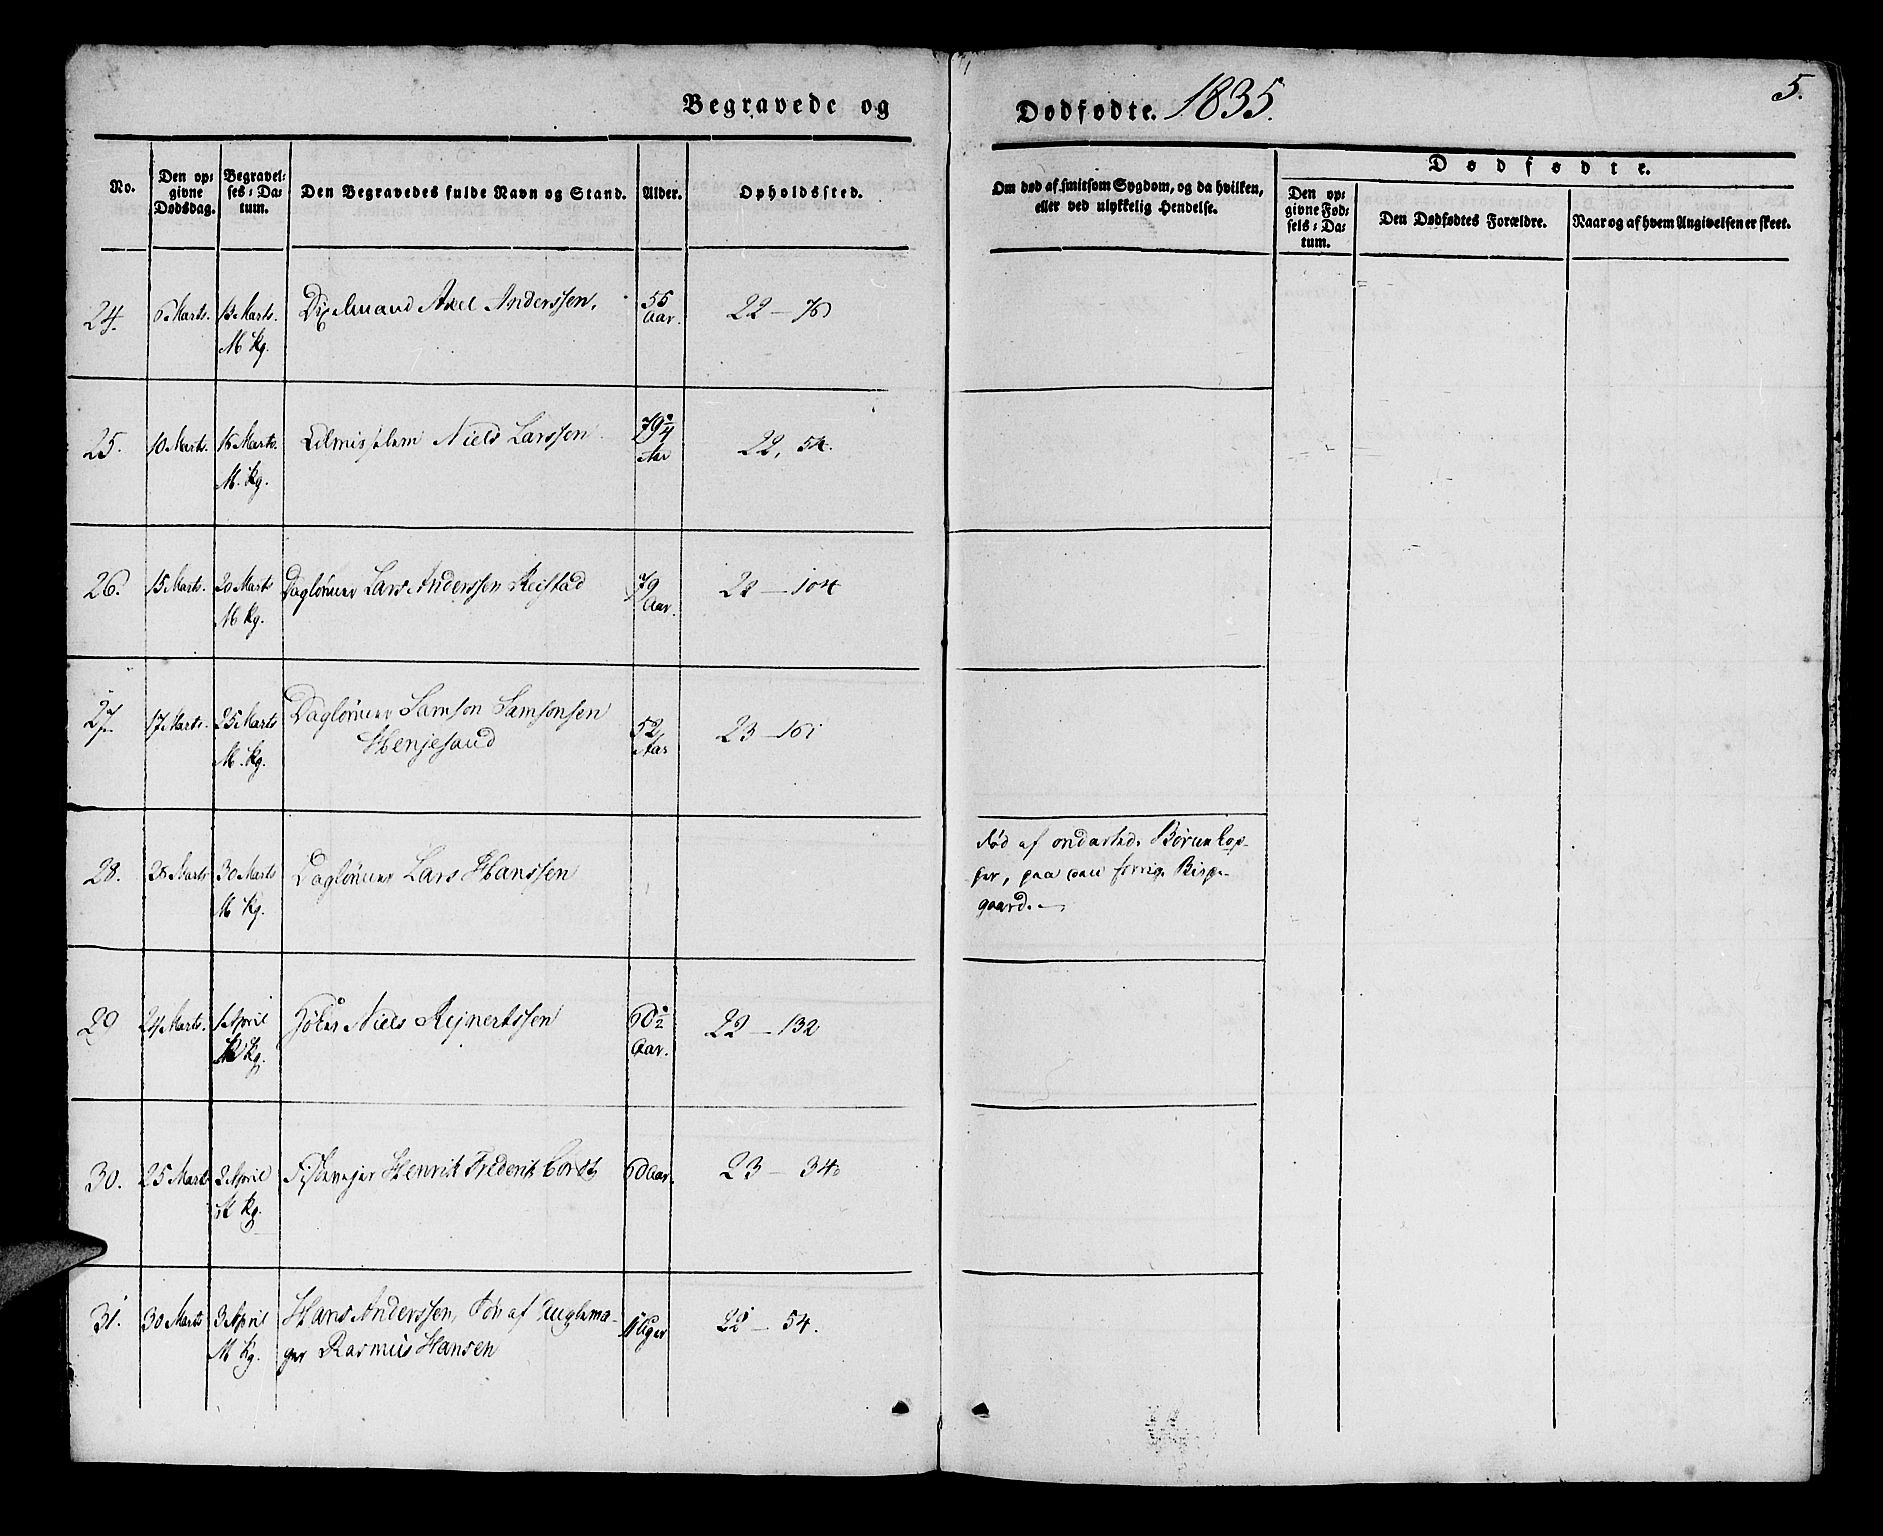 Begravede og
Dødfødte. 1835.
5.
No.
Den opgivne Dødsdag.
Begravelses-Datum.
Den Begravedes fulde Navn og Stand.
Alder.
Opholdssted.
Om død af smitsom Sygdom, og da hvilken, eller ved ulykkelig Hendelse.
Dødfødte.
Den opgivne Fødsels-Datum.
Den Dødfødtes Forældre.
Naar og af hvem Angivelsen er skeet.
24. 6 Marts. 13 Marts. Anderssen. 55 22 –
M Kg. Aar.
25. 10 Marts. 15 Marts. Niels Larssen 79 3/4 22, 54.
M. Kg. Aar
26. 15 Marts. 20 Marts Dagløner Lars Anderssen Reistad 79 22 – 104
M Kg. Aar.
27. 17 Marts. 25 Marts Dagløner Samson Samsonsen 52 23 –
M. Kg. Henjesand Aar
28. 28 Marts 30 Marts Dagløner Lars Hanssen Død af ondarted. Børnekop-
M Kg. per, paa den forrige Bispe-
gaard. –
29 24 Marts. 1 April Niels Rejnertssen 60 1/2 22 – 132
Kg. Aar.
30. 25 Marts 2 April Henrik Frederik Cordt 60 Aar. 23 – 34
M Kg.
31. 30 Marts 3 April Hans Anderssen, Søn af 11 Uger 22 – 54.
M Kg. ger Rasmus Hansen